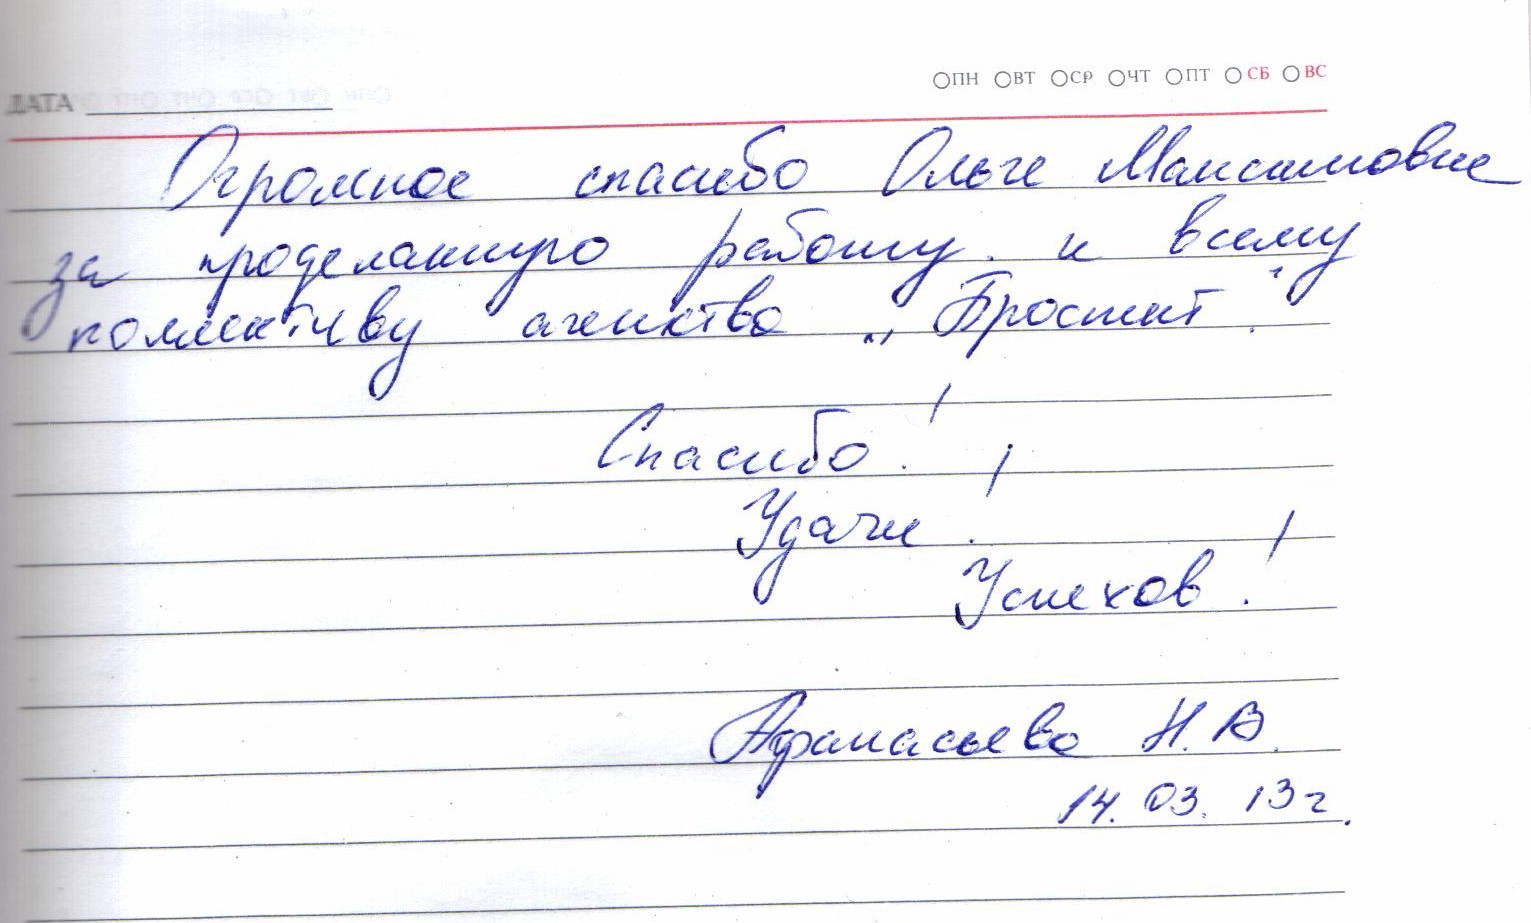 ДАТА ПН ВТ СР ЧТ ПТ СБ ВС
Огромное спасибо Ольге Максимовне
за проделанную работу и всему
коллективу агенства „Простит"
Спасибо!
Удачи!
Успехов!
Афанасьева Н.В.
14.03.13г.